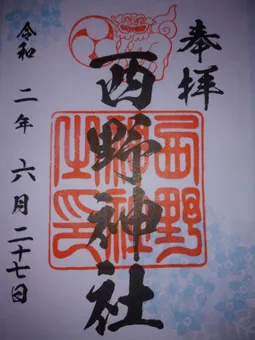 奉拝
西野神社
西野
神社
之印
令和二年六月二十七日